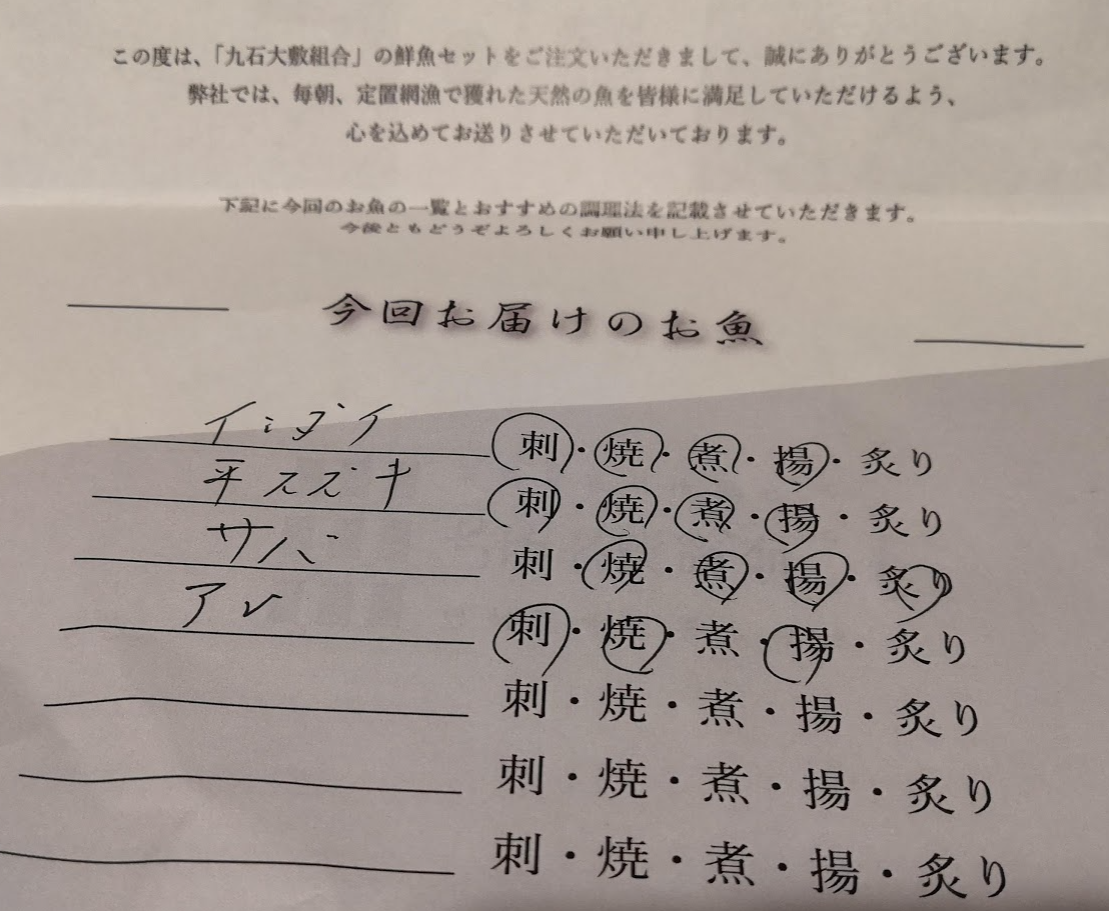 この度は、「九石大敷組合」の鮮魚セットをご注文いただきまして、誠にありがとうございます。
弊社では、毎朝、定置網漁で獲れた天然の魚を皆様に満足していただけるよう、
心を込めてお送りさせていただいております。
下記に今回のお魚の一覧とおすすめの調理法を記載させていただきます。
今後ともどうぞよろしくお願い申し上げます。
今回お届けのお魚
イシダイ 刺・焼・煮・揚・炙り
平スズキ 刺・焼・煮・揚・炙り
サバ 刺・焼・煮・揚・炙り
アレ 刺・焼・煮・揚・炙り
刺・焼・煮・揚・炙り
刺・焼・煮・揚・炙り
刺・焼・煮・揚・炙り